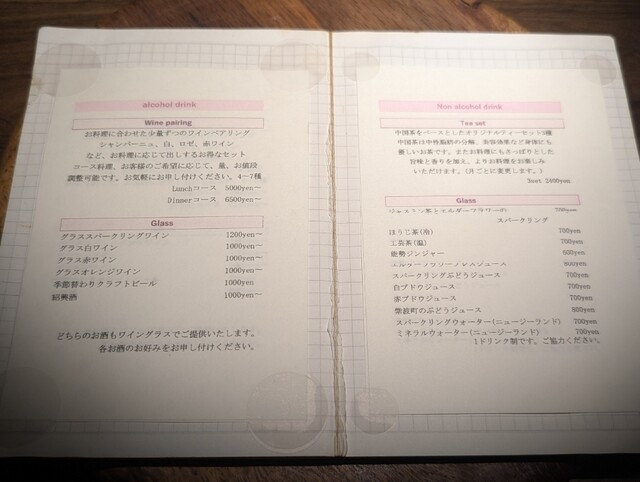 alcohol drink
Wine pairing
お料理に合わせた少量ずつのワインペアリング
シャンパーニュ、白、ロゼ、赤ワイン
など、お料理に応じて出しするお得なセット
コース料理、お客様のご希望に応じて、量、お値段
調整可能です。お気軽にお申し付けください。4~7種
Lunchコース 5000yen~
Dinnerコース 6500yen~
Glass
グラススパークリングワイン 1200yen~
グラス白ワイン 1000yen~
グラス赤ワイン 1000yen~
グラスオレンジワイン 1000yen~
季節替わりクラフトビール 1000yen
紹興酒 1000yen~
どちらのお酒もワイングラスでご提供いたします。
各お酒のお好みをお申し付けください。
Non alcohol drink
Tea set
中国茶をベースとしたオリジナルティーセット3種
中国茶は中性脂肪の分解、美容効果など身体にも
優しいお茶です。またお料理にもさっぱりとした
旨味と香りを加え、よりお料理をお楽しみ
いただけます。(月ごとに変更します。)
3set 2400yen
Glass
ジャスミン茶とエルダーフラワーの 700yen
スパークリング
ほうじ茶(冷) 700yen
工芸茶(温) 700yen
能勢ジンジャー 600yen
800yen
スパークリングぶどうジュース 700yen
白ブドウジュース 700yen
赤ブドウジュース 700yen
紫波町のぶどうジュース 800yen
スパークリングウォーター(ニュージーランド) 700yen
ミネラルウォーター(ニュージーランド) 700yen
1ドリンク制です。ご協力ください。